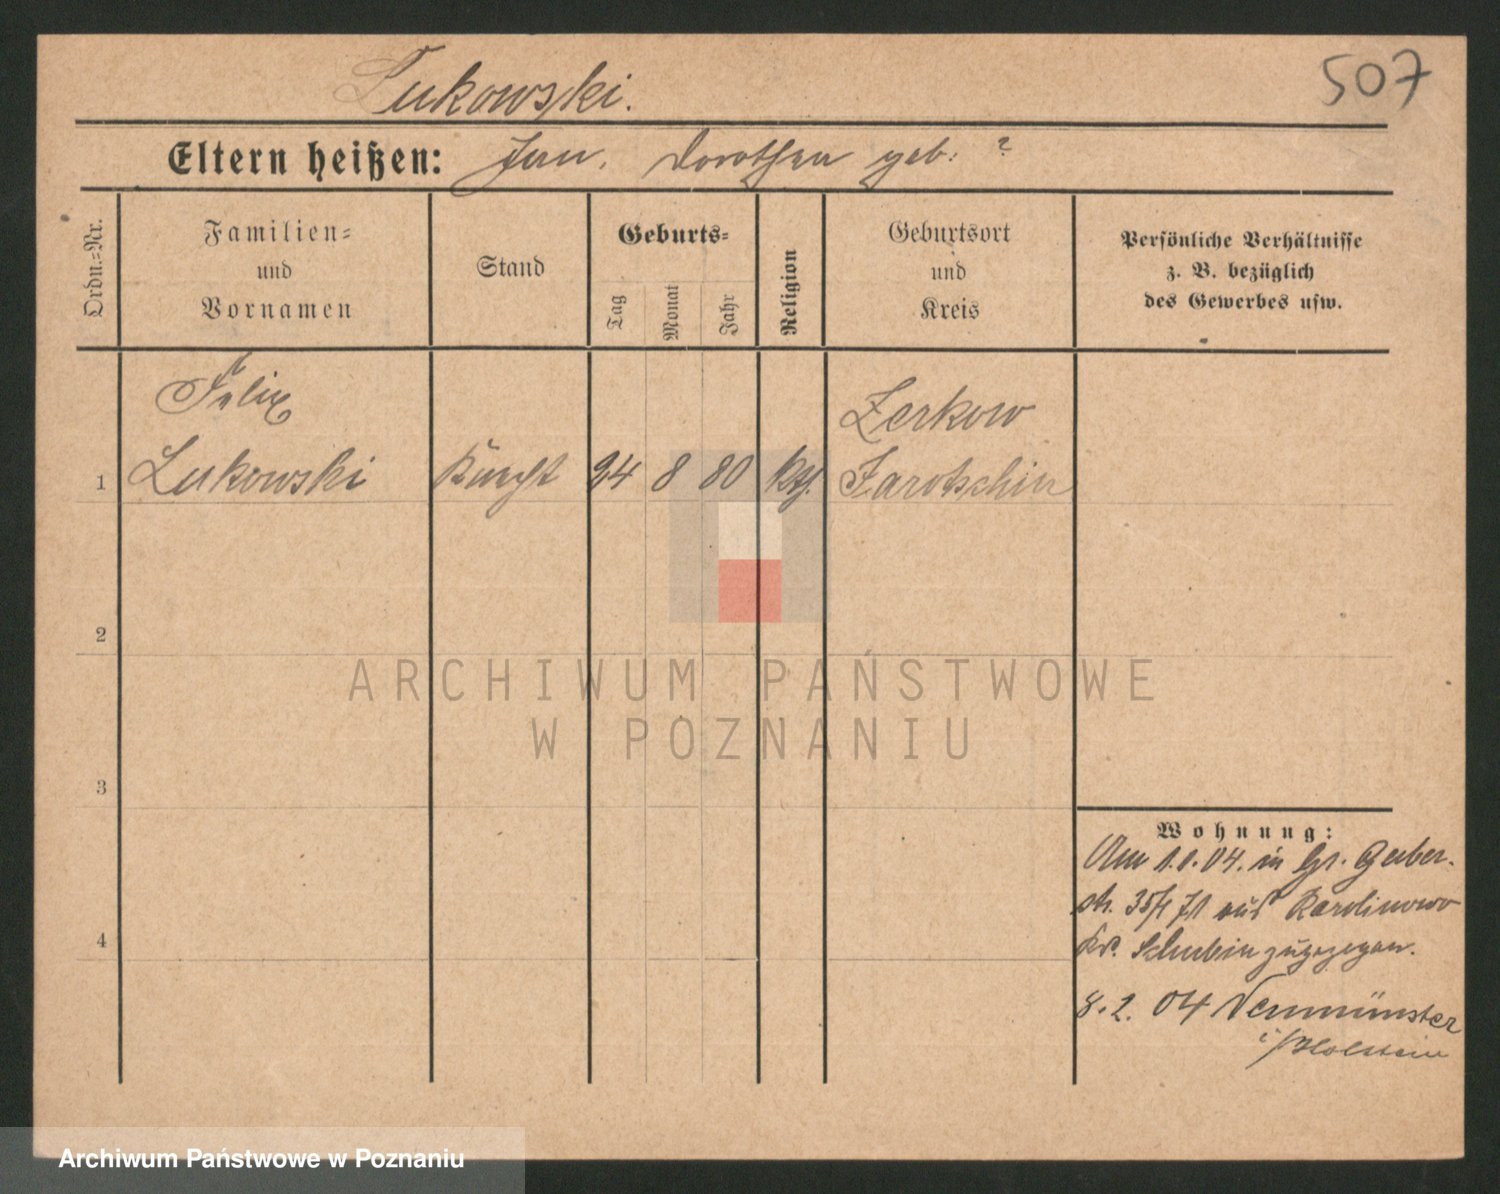 Lukowski.
507
Eltern heißen: Jan. Dorothea geb: ?
Ordn.=Nr.
Familien=
und
Vornamen
Stand
Geburts=
Tag
Monat
Jahr
Religion
Geburtsort
und
Kreis
Persönliche Verhältnisse
z. B. bezüglich
des Gewerbes usw.
Felix
Zerkow
1 Lukowski Knecht 24 8 80 kth. Jarotschin
2
3
4
Wohnung:
Am 1. 04. in Gr. Gerber-
str. aus Karolinowo
Kr. Schubin zugezogen.
8. 2. 04 Neumünster
i/Holstein
ARCHIWUM PAŃSTWOWE
W POZNANIU
Archiwum Państwowe w Poznaniu